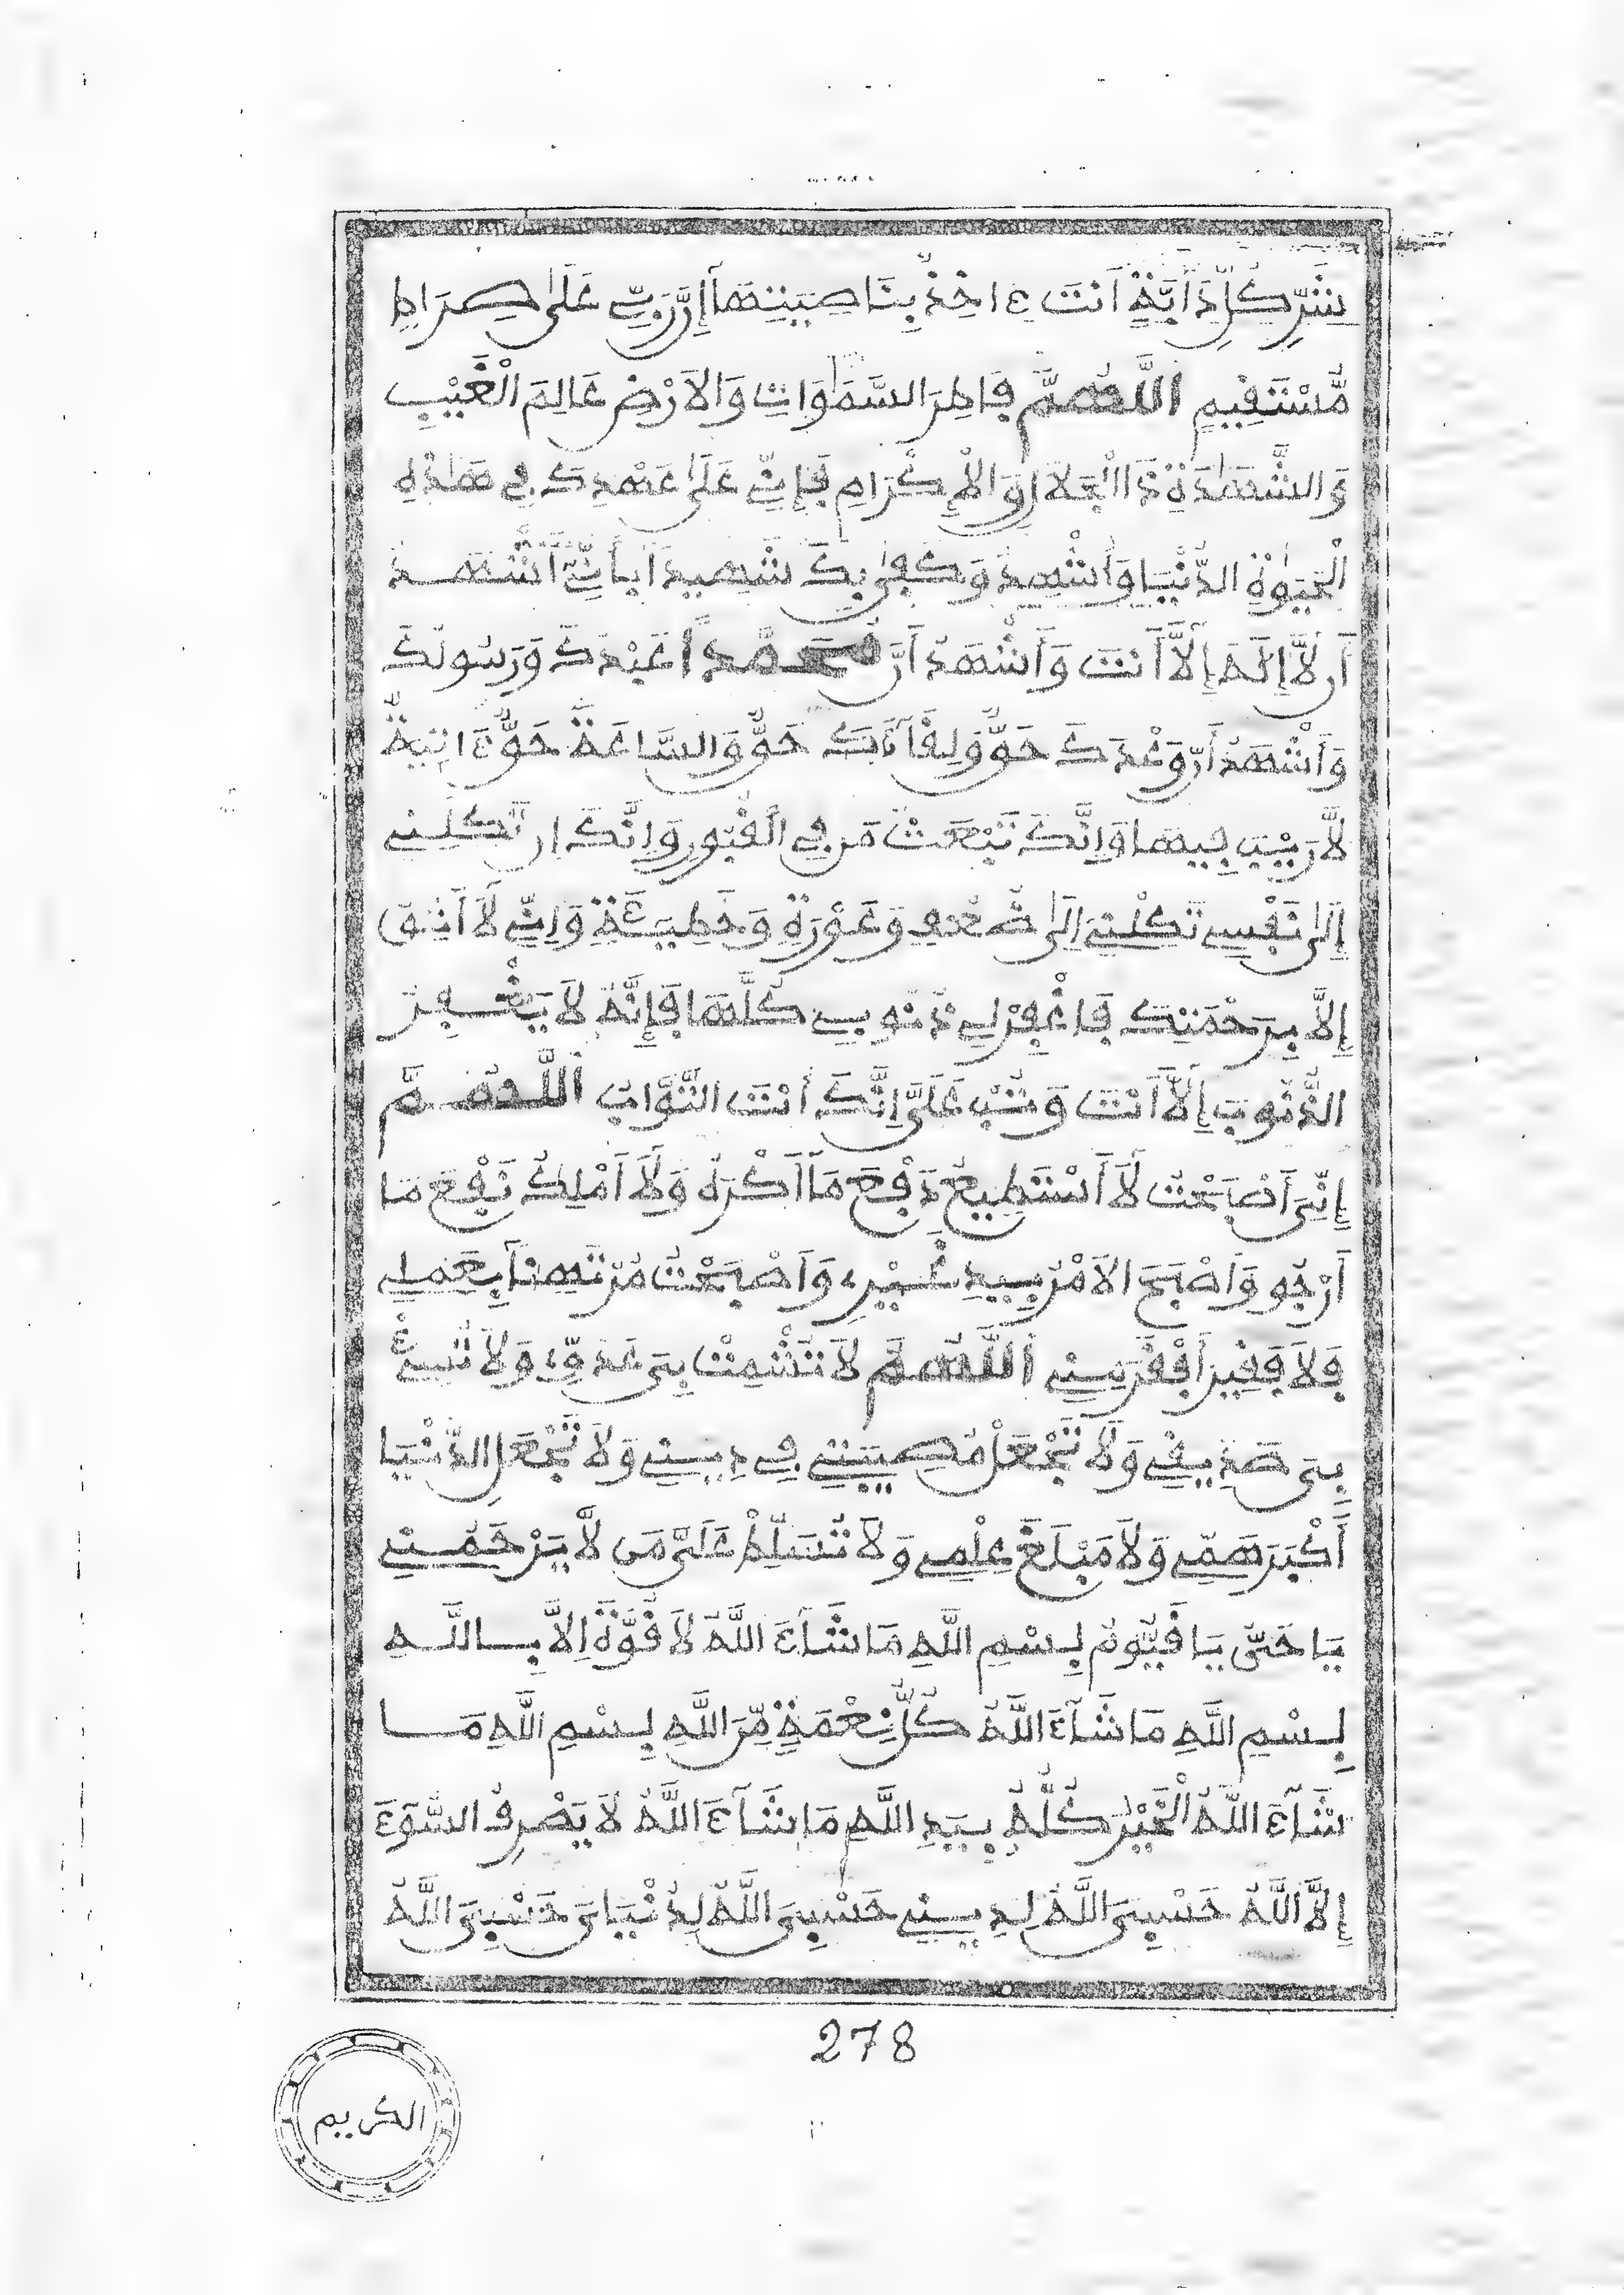 شَرِّ كُلِّ دَآبَّةٍ أَنتَ ءَاخِذٌ بِنَاصِيَتِهَآ إِنَّ رَبِّى عَلَىٰ صِرَاطٍ
مُّسْتَقِيمٍ اَللَّهُمَّ فَاطِرَ السَّمَٰوَاتِ وَالاَرْضِ عَالِمَ الْغَيْبِ
وَالشَّهَٰدَةِ ذَا الْجَلاَلِ وَالاِكْرَامِ فَإِنِّى عَلَىٰ عَهْدِكَ فِى هَٰذِهِ
الْحَيَوٰةِ الدُّنْيَا وَأُشْهِدُكَ وَكَفَىٰ بِكَ شَهِيداً بِأَنِّى أَشْهَدُ
أَن لاَّ إِلَٰهَ إِلاَّ أَنتَ وَأَشْهَدُ أَنَّ مُحَمَّداً عَبْدُكَ وَرَسُولُكَ
وَأَشْهَدُ أَنَّ وَعْدَكَ حَقٌّ وَلِقَآءَكَ حَقٌّ وَالسَّاعَةَ حَقٌّ ءَاتِيَةٌ
لاَّ رَيْبَ فِيهَا وَإِنَّكَ تَبْعَثُ مَن فِى الْقُبُورِ وَإِنَّكَ إِن تَكِلْنِى
إِلَىٰ نَفْسِى تَكِلْنِى إِلَىٰ ضُعْفٍ وَعَوْرَةٍ وَخَطِيـَٔةٍ وَإِنِّى لَآ أَثِقُ
إِلاَّ بِرَحْمَتِكَ فَاغْفِرْ لِى ذُنُوبِى كُلَّهَا فَإِنَّهُ لاَ يَغْفِرُ
الذُّنُوبَ إِلَّآ أَنتَ وَتُبْ عَلَىَّ إِنَّكَ أَنْتَ التَّوَّابُ اَللَّهُمَّ
إِنِّىَ أَصْبَحْتُ لَآ أَسْتَطِيعُ دَفْعَ مَآ أَكْرَهُ وَلَآ أَمْلِكُ نَفْعَ مَا
أَرْجُو وَأَصْبَحَ الاَمْرُ بِيَدِ غَيْرِى وَأَصْبَحْتُ مُرْتَهَناً بِعَمَلِى
فَلاَ فَقِيرَ أَفْقَرُ مِنِّى اَللَّهُمَّ لاَ تُشْمِتْ بِىَ عَدُوِّى وَلاَ تُسِئْ
بِىَ صَدِيقِى وَلاَ تَجْعَلْ مُصِيبَتِى فِى دِينِى وَلاَ تَجْعَلِ الدُّنْيَا
أَكْبَرَ هَمِّى وَلاَ مَبْلَغَ عِلْمِى وَلاَ تُسَلِّطْ عَلَىَّ مَن لاَّ يَرْحَمُنِى
يَا حَىُّ يَا قَيُّومُ بِسْمِ اللَّهِ مَا شَآءَ اللَّهُ لاَ قُوَّةَ إِلاَّ بِاللَّهِ
بِسْمِ اللَّهِ مَا شَآءَ اللَّهُ كُلُّ نِعْمَةٍ مِّنَ اللَّهِ بِسْمِ اللَّهِ مَا
شَآءَ اللَّهُ الْخَيْرُ كُلُّهُ بِيَدِ اللَّهِ مَا شَآءَ اللَّهُ لاَ يَصْرِفُ السُّوَءَ
إِلاَّ اللَّهُ حَسْبِىَ اللَّهُ لِدِينِى حَسْبِىَ اللَّهُ لِدُنْيَاىَ حَسْبِىَ اللَّهُ
278
الكريم